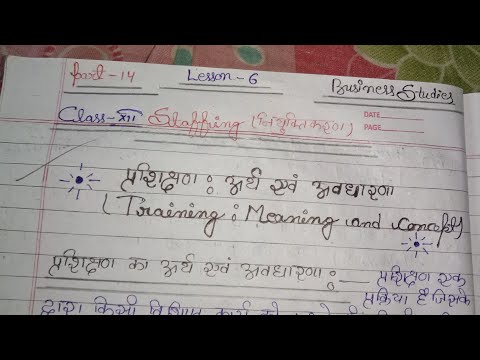 Part-14 Lesson-6 Business Studies
Class-XII Staffing (नियुक्तिकरण) DATE
PAGE
प्रशिक्षण : अर्थ एवं अवधारणा
(Training : Meaning and concept)
प्रशिक्षण का अर्थ एवं अवधारणा :- प्रशिक्षण एक
प्रक्रिया है जिसके
द्वारा किसी विशिष्ट कार्य को